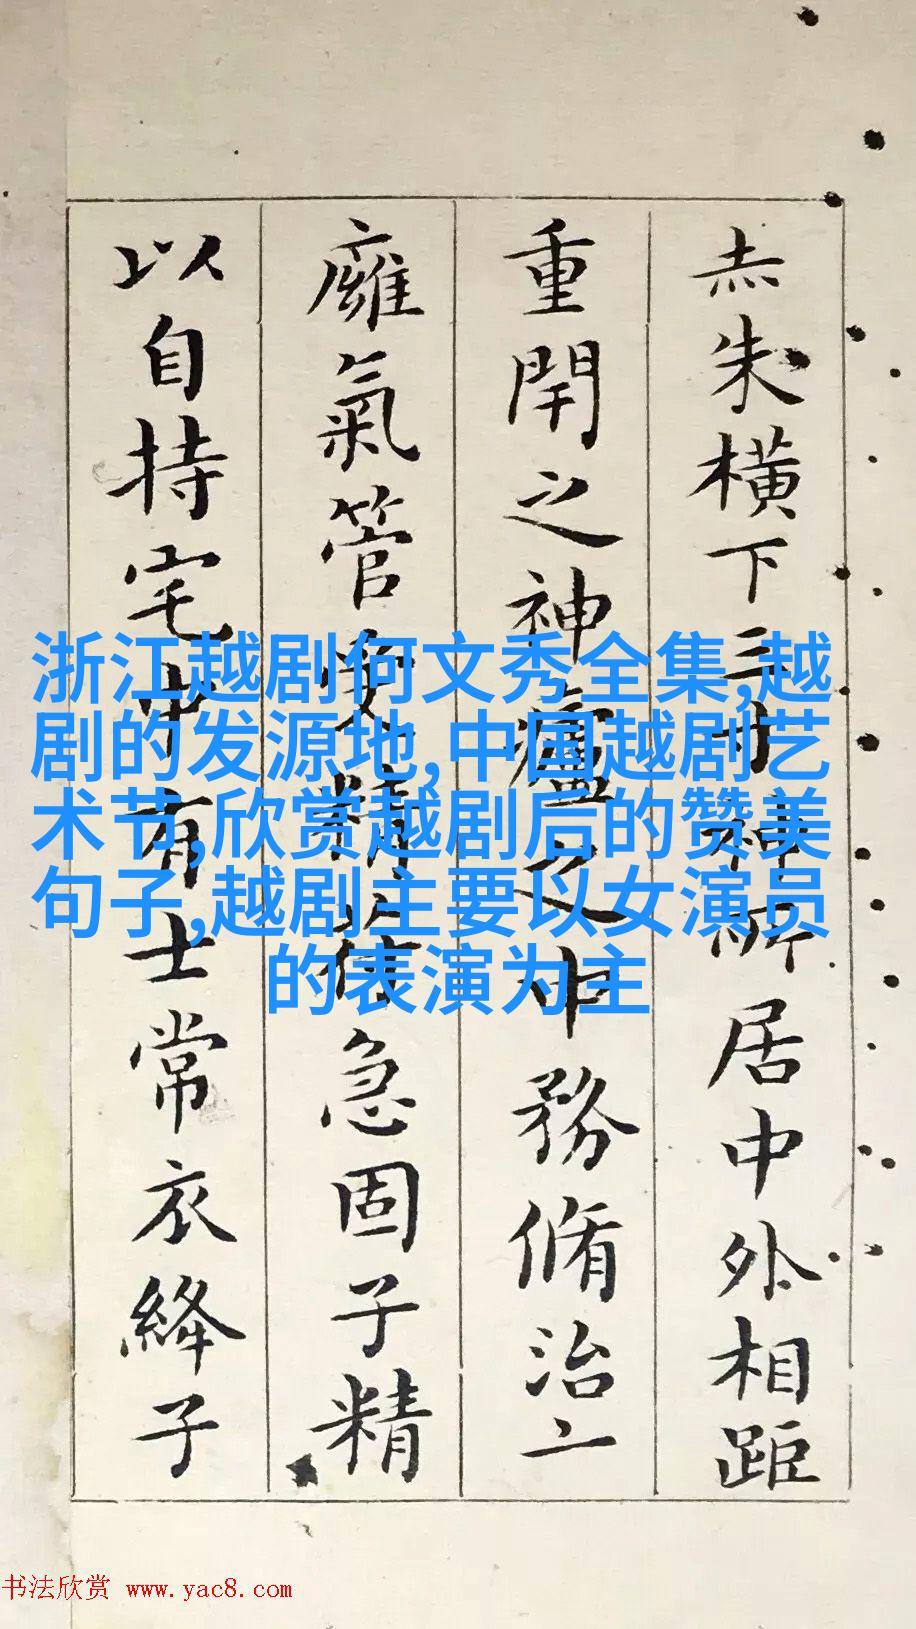 赤朱橫下三寸神所居中外相距
重閈之神廬之中務脩治二
癰氣管受精符急固子精
以自持宅中有士常衣絳子
浙江越剧何文秀全集,越
剧的发源地,中国越剧艺
术节,欣赏越剧后的赞美
句子,越剧主要以女演员
的表演为主
书法欣赏 www.yac8.com